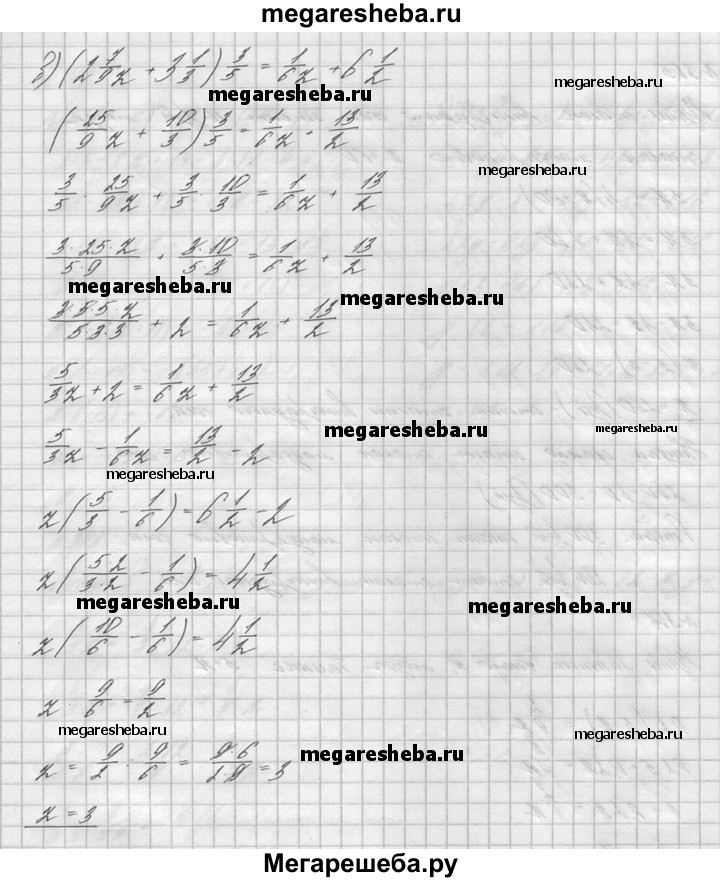 megaresheba.ru
з) (2 7/9 z + 3 1/3) 3/5 = 1/6 z + 6 1/2
megaresheba.ru
megaresheba.ru
(25/9 z + 10/3) 3/5 = 1/6 z + 13/2
megaresheba.ru
3/5 · 25/9 z + 3/5 · 10/3 = 1/6 z + 13/2
3·25·z/5·9 + 3·10/5·3 = 1/6 z + 13/2
megaresheba.ru
megaresheba.ru
3·5·5·z/5·3·3 + 2 = 1/6 z + 13/2
5/3 z + 2 = 1/6 z + 13/2
megaresheba.ru
megaresheba.ru
5/3 z - 1/6 z = 13/2 - 2
megaresheba.ru
z (5/3 - 1/6) = 6 1/2 - 2
z (5·2/3·2 - 1/6) = 4 1/2
megaresheba.ru
megaresheba.ru
z (10/6 - 1/6) = 4 1/2
z · 9/6 = 9/2
megaresheba.ru
megaresheba.ru
megaresheba.ru
z = 9/2 : 9/6 = 9·6/2·9 = 3
z = 3
Мегарешеба.ру